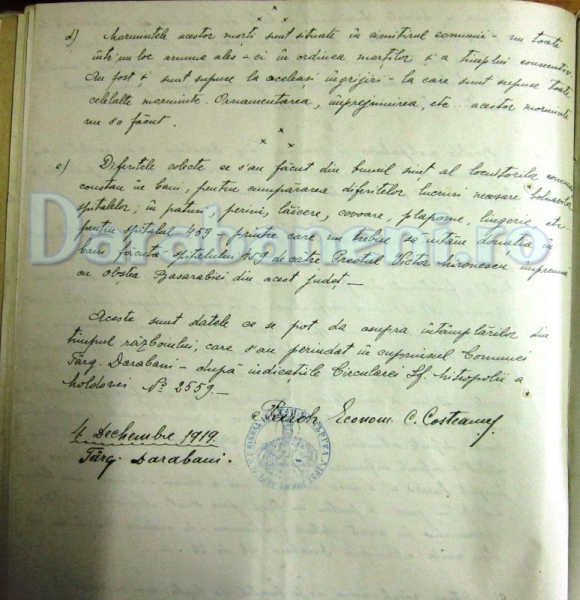 d) Mormintele acestor morți sunt situate în cimitirul comunii - nu toate
într'un loc anume ales - ci în ordinea morților și a timplui consecutiv.
Au fost și sunt supuse la aceleași îngrijiri - la care sunt supuse toate
celelalte morminte. Ornamentarea, împrejmuirea, etc. acestor morminte
nu s'a făcut.
e) Diferitele colecte ce s'au făcut din bunul simt al locuitorilor
constau în bani, pentru cumpărarea diferitelor lucruri necesare bolnavilor
spitalelor, în paturi, perini, lăicere, covoare, plapome, lingerie, etc.
pentru spitalul 469 - printre care nu trebue să uităm donația în
bani făcută spitalului 469 de catre Preotul Victor Mironescu împreună
cu obștea Basarabiei din acest județ. -
Aceste sunt datele ce se pot da asupra întâmplărilor din
timpul războiului, care s'au perindat în cuprinsul Comunei
Târg. Darabani - după indicațiile Circularei Sf. Mitropolii a
Moldovei No 2559. -
Paroh Econom. C. Costeanu
4 Dechembre 1919.
Târg. Darabani.
Darabaneni.ro